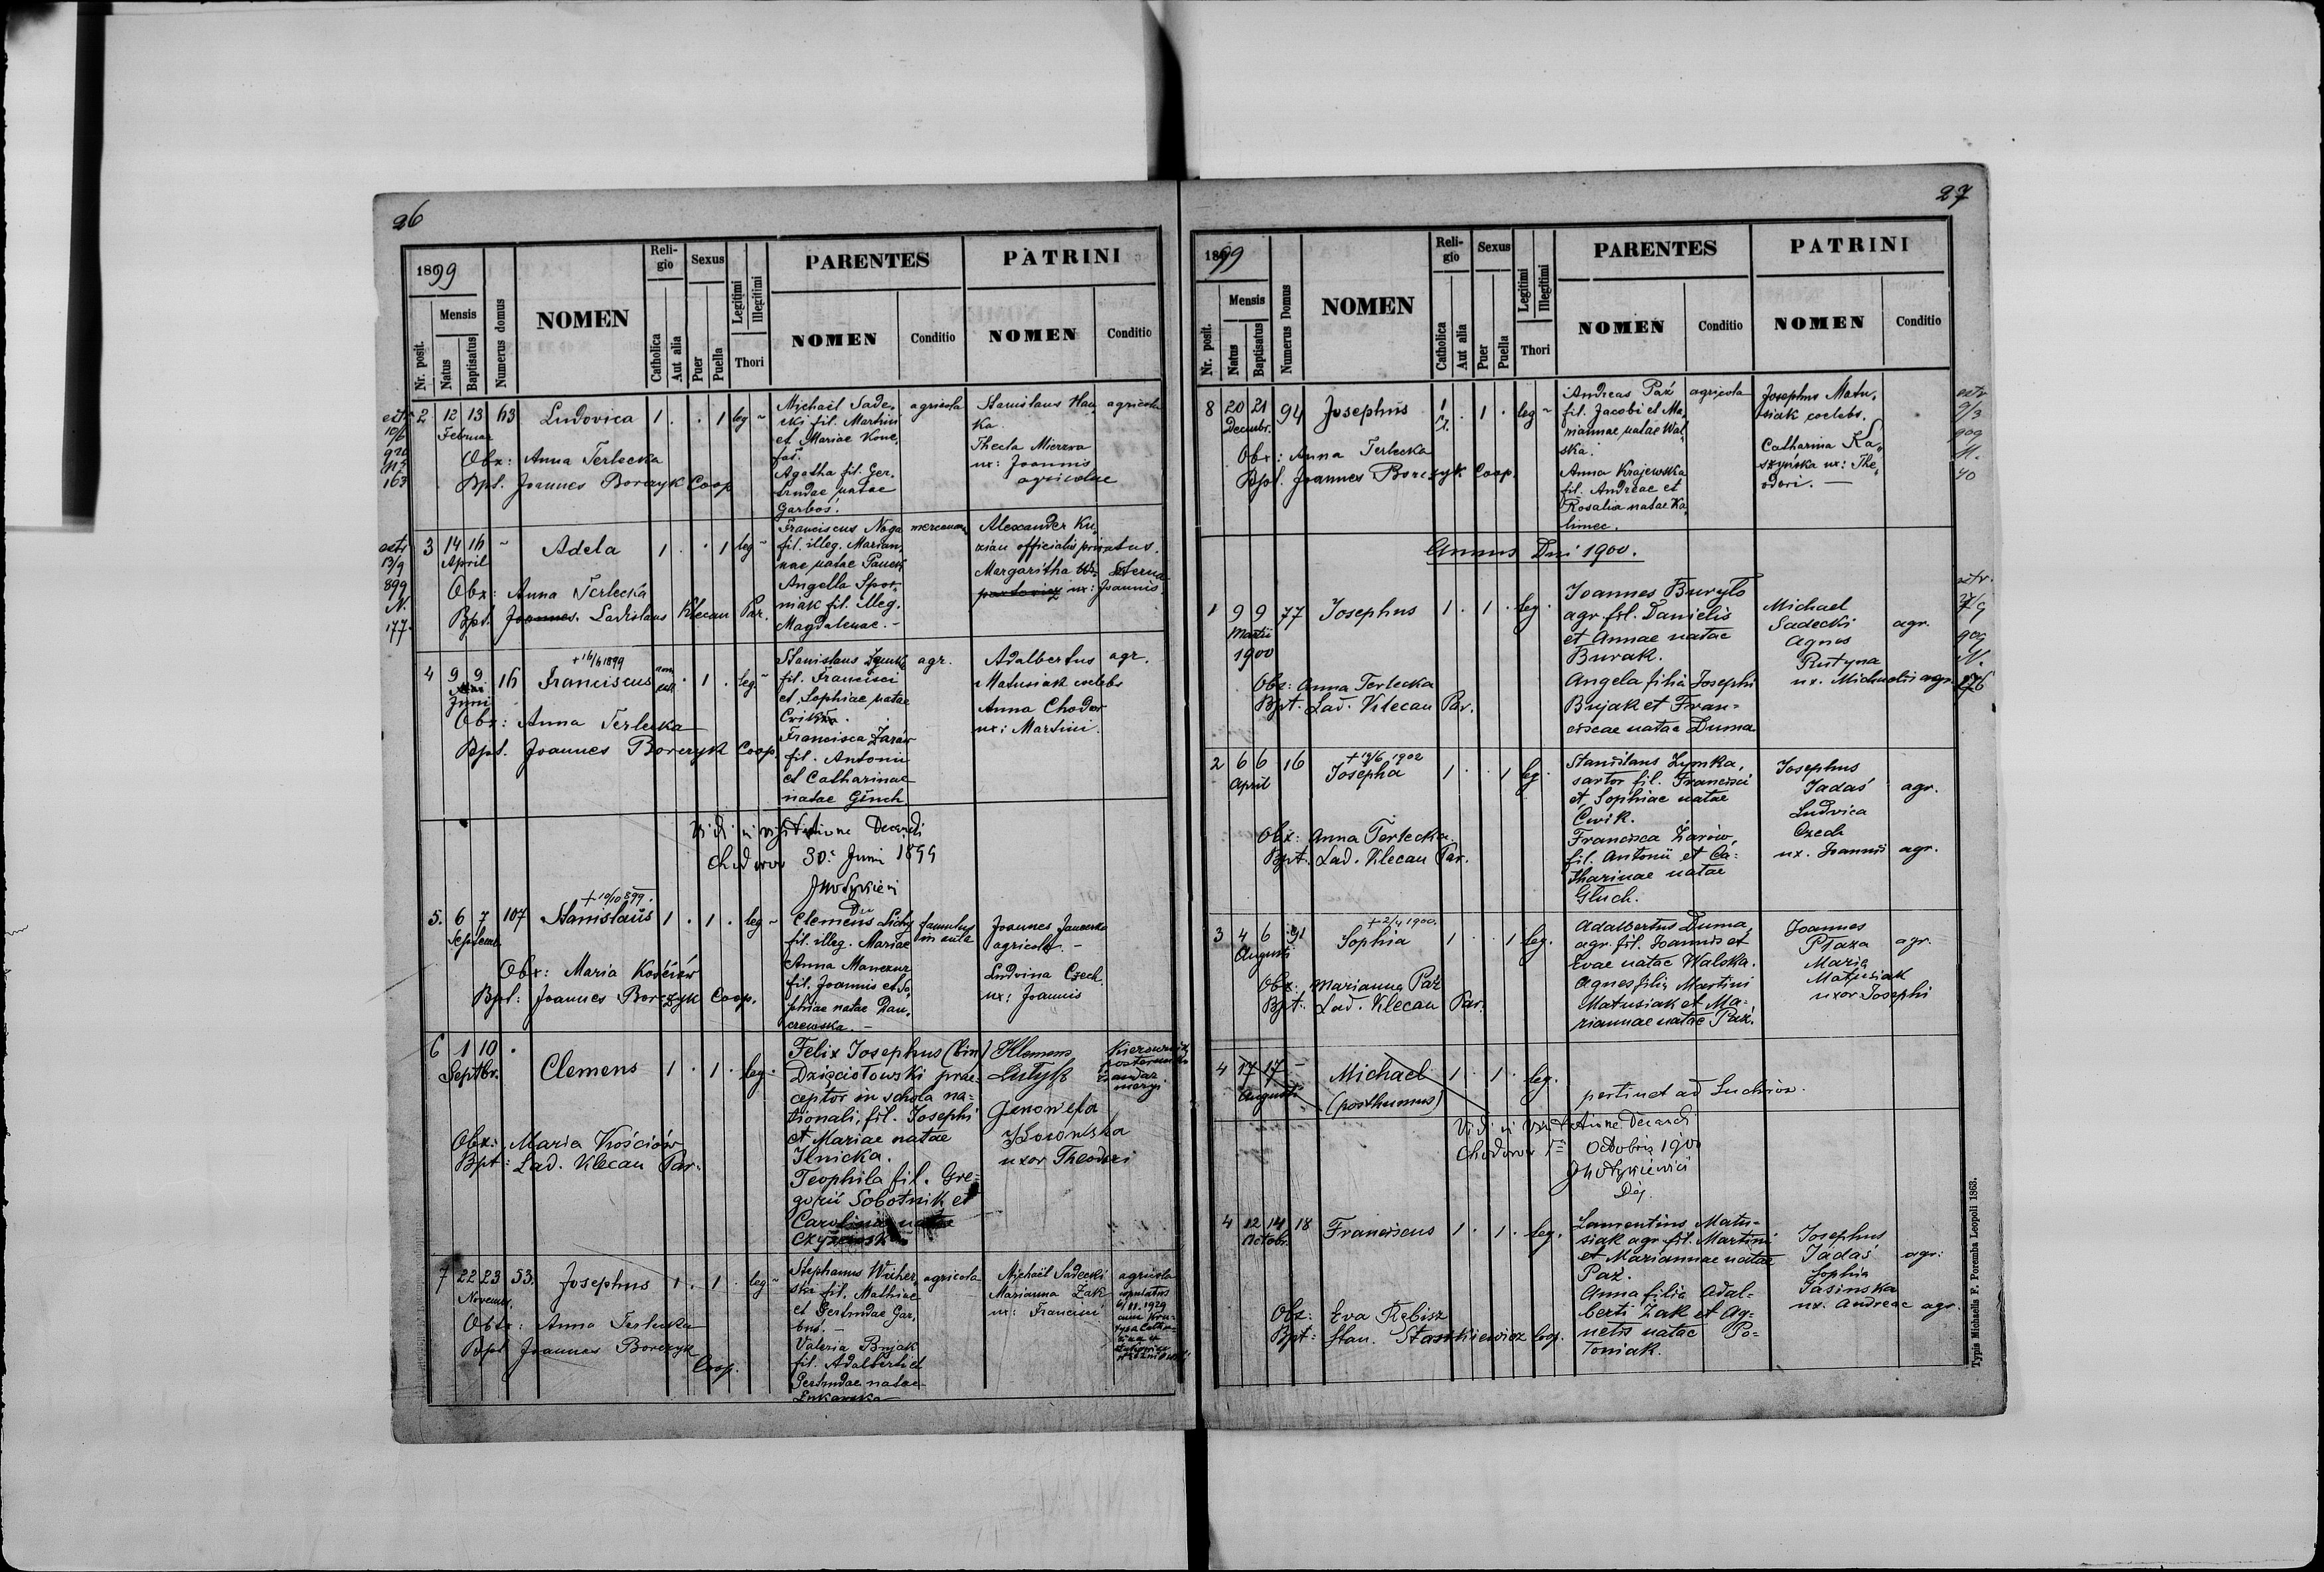 26
1899
Nr. posit.
Mensis
Natus
Baptisatus
Numerus domus
NOMEN
Religio
Catholica
Aut alia
Sexus
Puer
Puella
Legitimi
Illegitimi
Thori
PARENTES
NOMEN
Conditio
PATRINI
NOMEN
Conditio
2 12 13 63 Ludovica 1 . . 1 leg
Februar
Obx: Anna Terlecka
Bpt. Joannes Borczyk Coop
Michaël Sade,
cki fil. Martini
et Mariae Kone,
Agatha fil. Ger,
trudae natae
Garboś.
agricola
Stanislaus Hau,
ka
agricola
Thecla Mierzwa
ux: Joannis
agricolae
extr
13/9
899
N.
177
3 14 16 ~ Adela 1 . . 1 leg
April
Obx: Anna Terlecka
Bpt. Joannes. Ladislaus Klecan Par.
Franciscus Noga
fil. illeg. Marian,
nae natae
Angella Spor,
niak fil. illeg.
Magdalenae. -
Alexander Ku,
officialis privatus.
Margaritha
ux: Joannis.
4 9 9 16 Franciscus . 1 . leg.
+ 16/6 1899
Juni
Obx: Anna Terlecka
Bpt. Joannes Borczyk Coop.
Stanislaus Zymka
fil. Francisci
et Sophiae natae
Francisca Żarów
fil. Antonii
et Catharinae
natae Głuch
agr.
Adalbertus
Matusiak coelebs
Anna Chodor
ux: Martini.
agr.
Vidi in visitatione Decanali
Chodorow 30. Juni 1899
5. 6 7 107 Stanislaus 1 . 1 . leg
+ 10/10 899.
Septemb.
Obx: Maria Kościów
Bpt: Joannes Borczyk Coop.
Clemens Lichy
fil. illeg. Mariae
Anna Manczur
fil. Joannis et So,
phiae natae Dan,
czewska. -
famulus
in aula
Joannes Janecko
agricola -
Ludvina Czech
ux: Joannis
6 1 10 . Clemens 1 . 1 . leg.
Septbr.
Obx: Maria Kościów
Bpt: Lad. Klecan Par.
Felix Josephus (bin)
Dzięciołowski prae-
ceptor in schola na-
tionali, fil. Josephi
et Mariae natae
Ilnicka.
Teophila fil. Gre-
gorii Sobotnik et
Carolinae natae
Klemens
Genowefa
uxor Theodori
Kierownik
posterunku
żandar
meryi
7 22 23 53. Josephus 1 . 1 . leg
Novemb.
Obx: Anna Terlecka
Bpt Joannes Borczyk
Coop.
Stephanus Wicher,
ski fil. Mathiae
et Gertrudae Gar,
bus. -
Valeria Bujak
fil. Adalberti et
Gertrudae natae
Łukawska
agricola
Michaël Sadecki
Marianna Żak
ux: Francisci
agricola
copulatus
6/11.1929
27
1899
Nr. posit.
Mensis
Natus
Baptisatus
Numerus Domus
NOMEN
Religio
Catholica
Aut alia
Sexus
Puer
Puella
Legitimi
Illegitimi
Thori
PARENTES
NOMEN
Conditio
PATRINI
NOMEN
Conditio
8 20 21 94 Josephus 1 . 1 . leg
Decembr.
Obx: Anna Terlecka
Bpt. Joannes Borczyk Coop.
Andreas Paź
fil. Jacobi et Ma,
riannae natae Wal,
ska.
Anna Krajewska
fil. Andreae et
Rosalia natae Ka,
limec.
agricola
Josephus Matu,
siak coelebs.
Catharina Ka,
szyńska ux: The,
odori. -
extr
9/3
909
N.
40
Annus Dni 1900.
1 9 9 77 Josephus 1 . 1 . leg.
Martii
1900
Obx: Anna Terlecka
Bpt. Lad. Klecan Par.
Joannes Buryło
agr. fil. Danielis
et Annae natae
Burak.
Angela filia Josephi
Bujak et Fran-
ciscae natae Duma
Michael
Sadecki
agr.
Agnes
Rutyna
ux. Michaelis agr.
2 6 6 16 Josepha 1 . . 1 leg.
+ 19/6 1902
April
Obx: Anna Terlecka
Bpt. Lad. Klecan Par.
Stanislaus Zymka,
sartor fil. Francisci
et Sophiae natae
Cwik.
Francisca Żarów,
fil. Antonii et Ca-
tharinae natae
Głuch.
Josephus
Jadaś
agr.
Ludvica
Czech
ux. Joannis agr.
3 4 6 31 Sophia 1 . . 1 leg.
Augusti
Obx: Marianna Paź
Bpt. Lad. Klecan Par.
Adalbertus Duma
agr. fil. Joannis et
Evae natae Walska.
Agnes filia Martini
Matusiak et Ma-
riannae natae Paź.
Joannes
Płaza
agr.
Maria
Matusiak
uxor Josephi
4 17 17 - Michael 1 . 1 . leg.
Augusti
(posthumus)
pertinet ad Suchrów.
Vidi in Visitatione Decanali
Chodorow Octobris 1900
4 12 14 18 Franciscus 1 . 1 . leg.
Octobr.
Obx: Eva Rębisz
Bpt: Stan. Staszkiewicz Coop.
Laurentius Matu-
siak agr. fil. Martini
et Mariannae natae
Paź.
Anna filia Adal-
berti Żak et Ag-
netis natae Po-
toniak.
Josephus
Jadaś
agr:
Sophia
Jasinska
ux. Andreae agr.
Typis Michaelis F. Poremba Leopoli 1863.